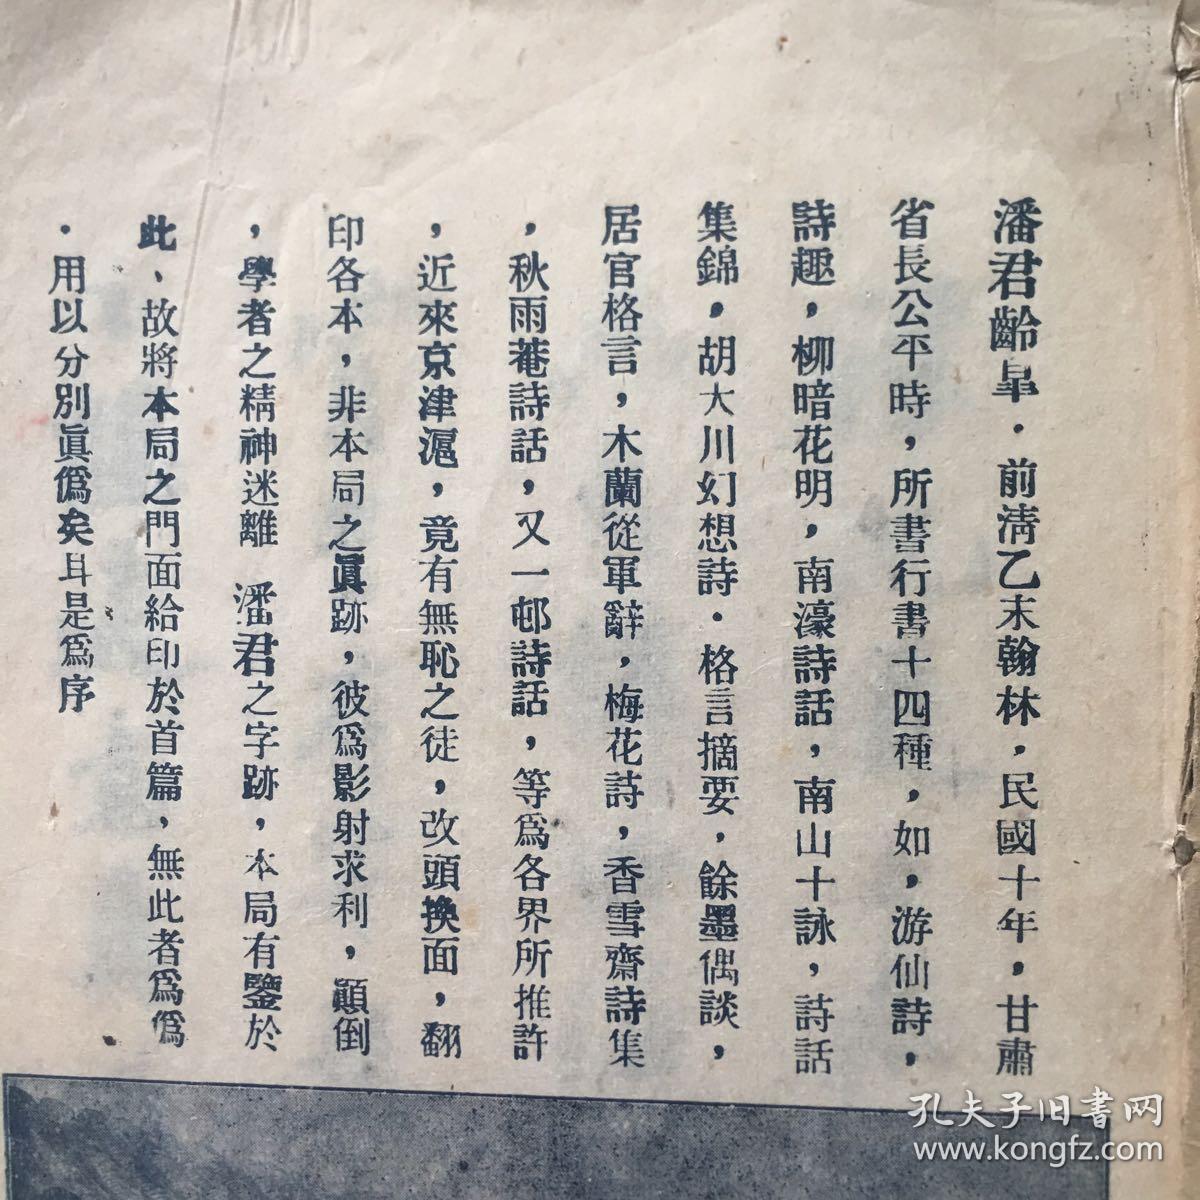 潘君齡皐．前淸乙末翰林，民國十年，甘肅
省長公平時，所書行書十四種，如，游仙詩，
詩趣，柳暗花明，南濠詩話，南山十詠，詩話
集錦，胡大川幻想詩．格言摘要，餘墨偶談，
居官格言，木蘭從軍辭，梅花詩，香雪齋詩集
，秋雨菴詩話，又一邨詩話，等爲各界所推許
，近來京津滬，竟有無恥之徒，改頭換面，翻
印各本，非本局之眞跡，彼爲影射求利，顚倒
，學者之精神迷離 潘君之字跡，本局有鑒於
此、故將本局之門面給印於首篇，無此者爲僞
．用以分別眞僞矣耳是爲序
孔夫子旧書网
www.kongfz.com